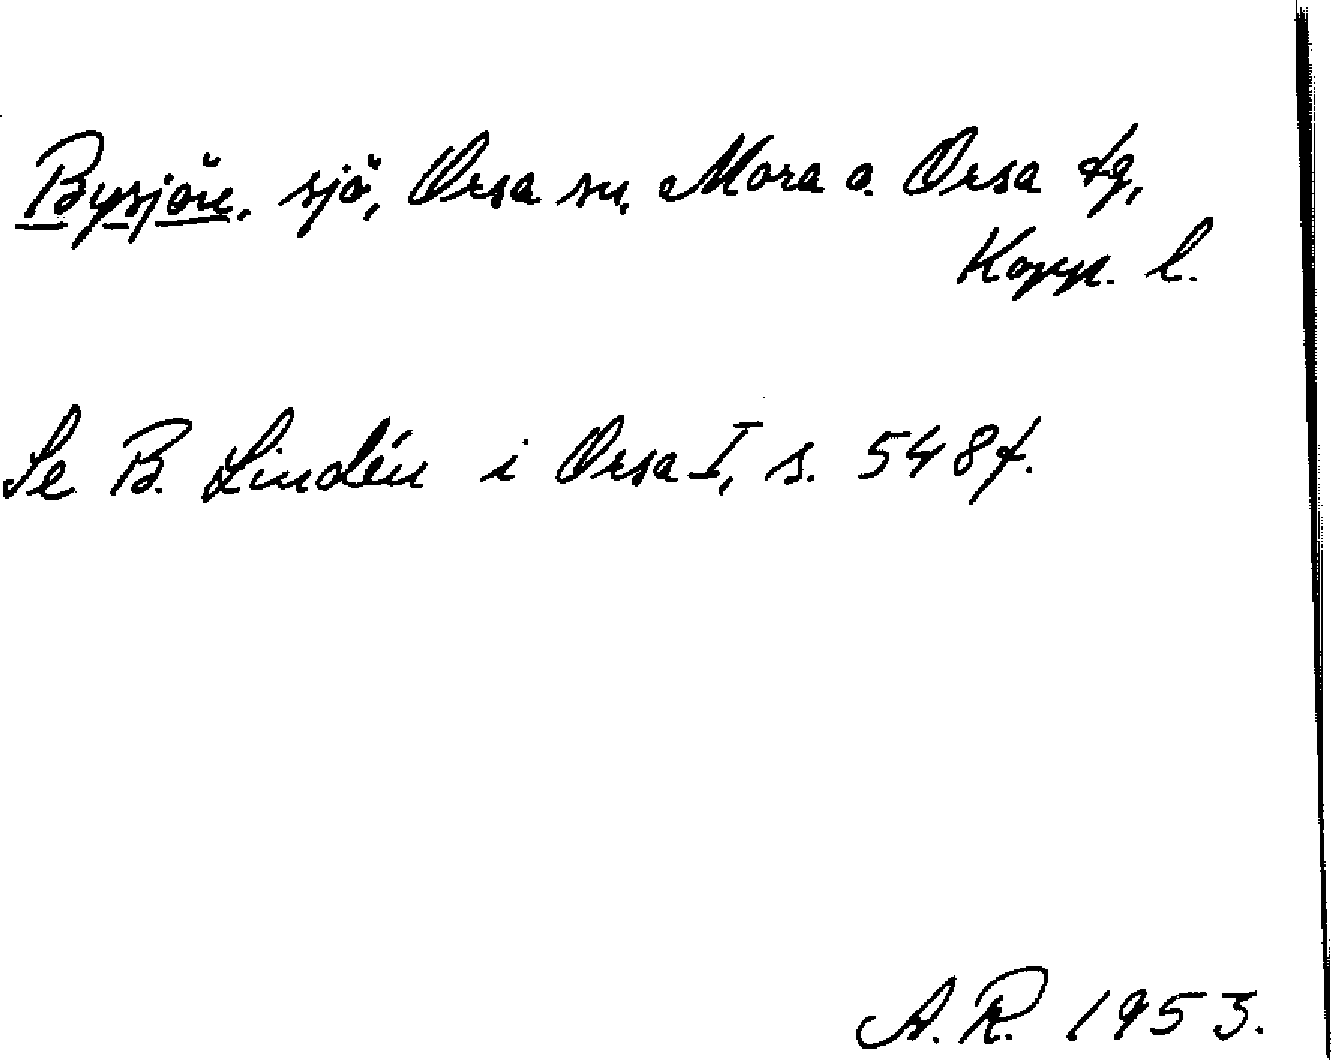 Bysjön, sjö, Orsa sn, Mora o. Orsa tg,
Kopp. l.
Se B. Lindén i Orsa I, s. 548f.
A.R. 1953.